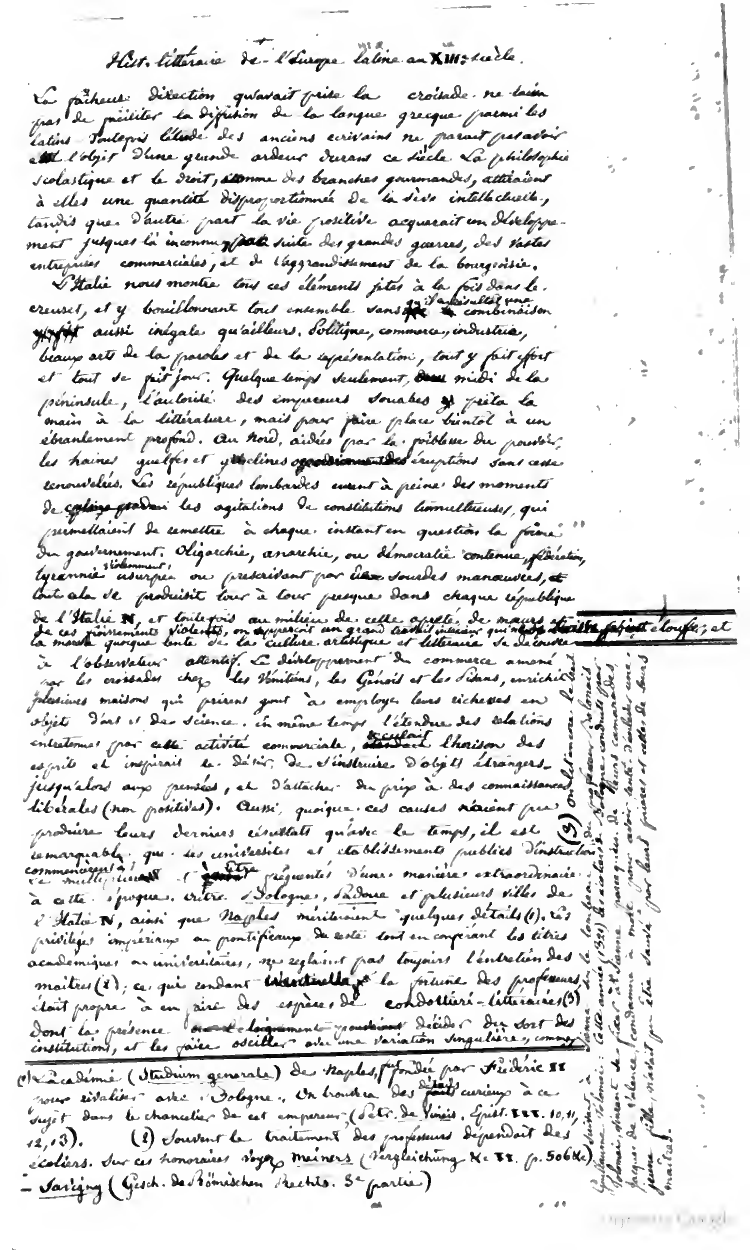 Hist. littéraire de l'Europe latine au XIIIe siècle.
La fâcheuse direction qu'avait prise la croisade ne laissa
pas de faciliter la diffusion de la langue grecque parmi les
latins. Toutefois l'étude des anciens écrivains ne parait pas avoir
été l'objet d'une grande ardeur durant ce siècle. La philosophie
scolastique et le droit, comme des branches gourmandes, attiraient
à elles une quantité disproportionnée de la sève intellectuelle,
tandis que d'autre part la vie positive acquerait un développe-
ment jusques là inconnu, suite des grandes guerres, des vastes
entreprises commerciales, et de l'aggrandissement de la bourgeoisie.
L'Italie nous montre tous ces éléments jetés à la fois dans le
creuset, et y bouillonnant tous ensemble sans qu'il en résultat une combinaison
aussi inégale qu'ailleurs. Politique, commerce, industrie,
beaux arts de la parole et de la représentation, tout y fait effort
et tout se fait jour. Quelque temps seulement, midi de la
péninsule, l'autorité des empereurs souabes prêta la
main à la littérature, mais pour faire place bientôt à un
ébranlement profond. Au Nord, aidées par la foiblesse du pouvoir,
les haines guelfes et gibelines éruptions sans cesse
renouvelées. Les républiques lombardes eurent à peine des moments
de les agitations de constitutions tumultueuses, qui
permettaient de remettre à chaque instant en question la forme
du gouvernement. Oligarchie, anarchie, ou démocratie contenue, fédération,
tyrannie violemment usurpée ou prescrivant par sourdes manœuvres,
tout cela se produisit tour à tour presque dans chaque république
de l'Italie N, et toutefois au milieu de cette apreté de mœurs
de ces froissements violents, on apperçoit un grand travail intérieur étouffer, et
la marche quoique lente de la culture artistique et littéraire se découvre
à l'observateur attentif. Le développement du commerce amené
par les croisades chez les Vénitiens, les Génois et les Pisans, enrichit
plusieurs maisons qui prirent gout à employer leurs richesses en
objets d'art et de science. En même temps l'étendue des relations
entretenues par cette activité commerciale, reculait l'horison des
esprits et inspirait le désir de s'instruire d'objets étrangers
jusqu'alors aux pensées, et d'attacher du prix à des connaissances
libérales (non positives). Aussi, quoique ces causes n'aient pu
produire leurs derniers résultats qu'avec le temps, il est
remarquable que les universités et établissements publics d'instruction
commencèrent à se multiplier et être fréquentés d'une manière extraordinaire
à cette époque. Bologne, Padoue et plusieurs villes de
l'Italie N, ainsi que Naples mériteraient quelques détails (1). Les
privilèges impériaux ou pontificaux du reste tout en conférant les titres
académiques ou universitaires, ne réglaient pas toujours l'entretien des
maitres (2); ce qui rendant la fortune des professeurs,
était propre à en faire des espèces de condottieri-littéraires (3)
dont la présence ou l'éloignement décider du sort des
institutions, et les faire osciller avec une variation singulière, comme
(1) L'académie (Studium generale) de Naples, fut fondée par Frédéric II
pour rivaliser avec Bologne. On trouvera des détails curieux à ce
sujet dans le chancelier de cet empereur, (Petr. de Vineis, Epist. III. 10, 11,
12, 13). (2) Souvent le traitement des professeurs dépendait des
écoliers. Sur ces honoraires voyez Meiners (Vergleichung &c II. p. 506 &c).
– Savigny (Gesch. de Römischen Rechts. 3e partie)
(3) on lit encore le
Guillaume Tolomei. Cette année (1321) les écoliers de Bologne conduits par
Tolomei, vinrent se fixer à Sienne
Jacques de Valence, condamné à mort pour avoir tenté d'enlever une
jeune fille, n'avait pu être sauvé par leurs prières et celles de leurs
maitres.